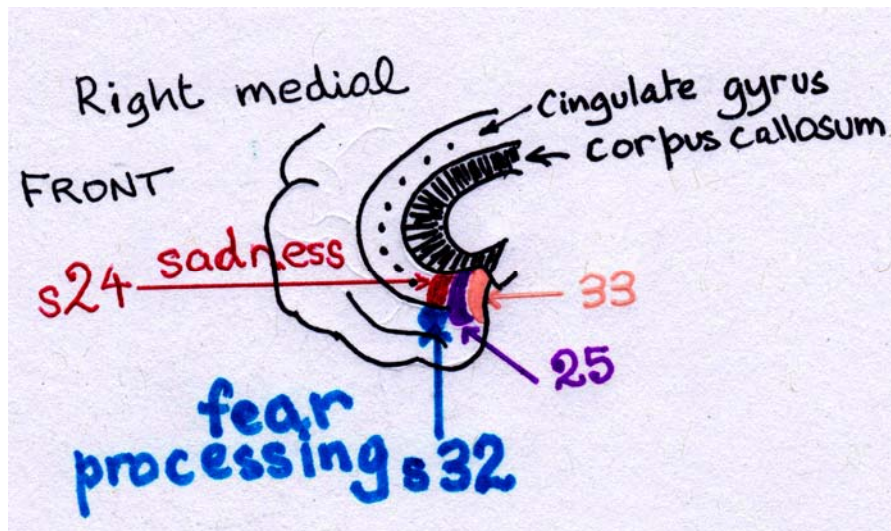 Right medial
cingulate gyrus
corpus callosum
FRONT
sadness
s24
33
25
fear
processing s32